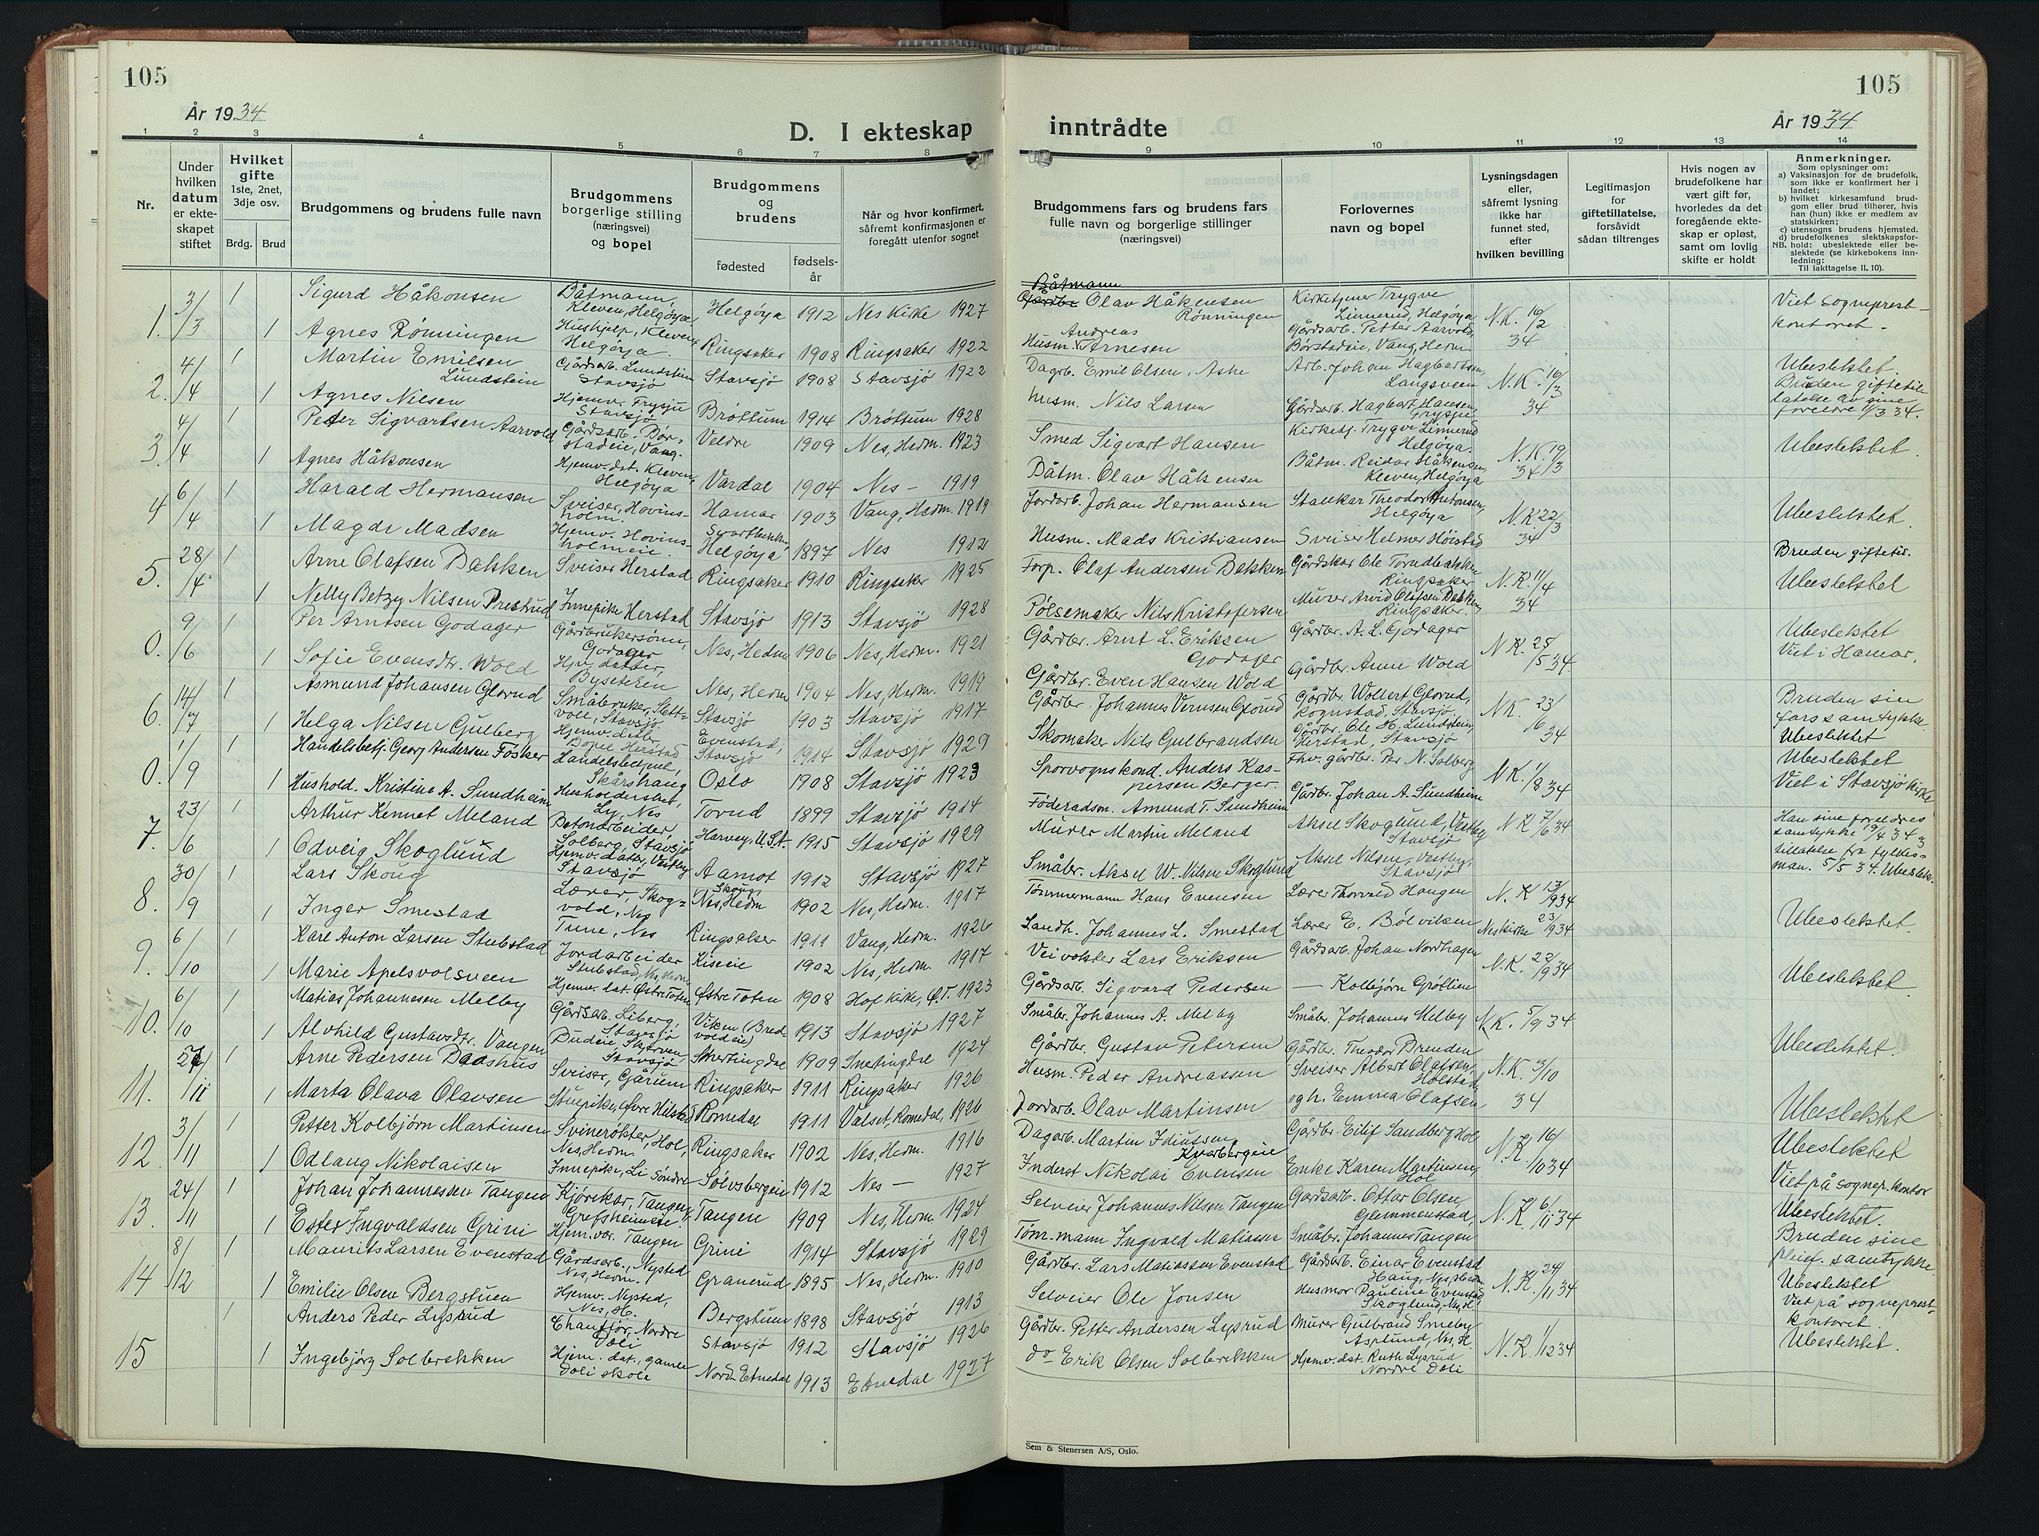 105
105
År 1934
År 1934
D. I ekteskap inntrådte
1 2 3 4 5 6 7 8 9 10 11 12 13 14
Nr.
Under hvilken datum er ekteskapet stiftet
Hvilket gifte 1ste, 2net, 3dje osv.
Brdg. Brud
Brudgommens og brudens fulle navn
Brudgommens borgerlige stilling (næringsvei) og bopel
Brudgommens og brudens
fødested
fødselsår
Når og hvor konfirmert, såfremt konfirmasjonen er foregått utenfor sognet
Brudgommens fars og brudens fars fulle navn og borgerlige stillinger (næringsvei)
Forlovernes navn og bopel
Lysningsdagen eller, såfremt lysning ikke har funnet sted, efter hvilken bevilling
Legitimasjon for giftetillatelse, forsåvidt sådan tiltrenges
Hvis nogen av brudefolkene har vært gift før, hvorledes da det foregående ekteskap er opløst, samt om lovlig skifte er holdt
Anmerkninger.
Som oplysninger om:
a) Vaksinasjon for de brudefolk, som ikke er konfirmert her i landet;
b) hvilket kirkesamfund brudgom eller brud tilhører, hvis han (hun) ikke er medlem av statskirken;
c) utensogns brudens hjemsted.
d) brudefolkenes slektskapsforhold: ubeslektede eller beslektede (se kirkebokens innledning:
Til iakttagelse II. 10).
1. 3/3 1 Sigurd Håkonsen Båtmann, Kleven, Helgøya Helgøya 1912 Nes Kirke 1927 Båtmann Olav Håkensen Kirketjener Trygve Linnerud, Helgøya N.K. 16/2 34 Viet sogneprestkontoret.
1 Agnes Rønningen Hushjelp, Kleven, Helgøya. Ringsaker 1908 Ringsaker 1922 Husm. Andreas Arnesen Rønningen Gårdsarb. Petter Aarvold, Børstadeie, Vang, Hedm.
2. 4/4 1 Martin Emilsen Lundstein Gårdsarb. Lundstein Stavsjø Stavsjø 1908 Stavsjø 1922 Dagarb. Emil Olsen, Aske Arb. Johan Hagbartsen, Langsveen N.K. 16/3 34 Ubeslektet.
1 Agnes Nilsen Hjemv. Frysju Stavsjø Brøttum 1914 Brøttum 1928 husm. Nils Larsen Gårdsarb. Hagbart Hansen, Frysju Bruden giftetillatelse av sine foreldre 11/3 34.
3. 4/4 1 Peter Sigvartsen Aarvold Gårdsarb. Børstadeie, Vang. Veldre 1909 Nes, Hedm. 1923 Smed Sigvart Hansen Kirketj. Trygve Linnerud Helgøya. N.K. 19/3 34 Ubeslektet.
1 Agnes Håkonsen Hjemv. dat. Kleven, Helgøya Vardal 1904 Nes - 1919 Båtm. Olav Håkensen Båtm. Reidar Håkensen, Kleven, Helgøya
4 6/4 1 Harald Hermansen Sveiser, Hovinsholm. Hamar 1903 Vang, Hedm. 1919 Jordarb. Johan Hermansen Stallkar Theodor Antonsen, Helgøya N.K. 22/3 34 Ubeslektet.
1 Magda Madsen Hjemv. Hovinsholmeie. Svartbekken, Helgøya 1897 Nes 1912 Husm. Mads Kristiansen Sveiser Helmer Høistad
5. 28/4 1 Arne Olafsen Dakken Sveiser Herstad Ringsaker 1910 Ringsaker 1925 Forp. Olaf Andersen Dakken Gårdskar Ole Torudbakken, Ringsaker N.K. 11/4 34 Bruden giftetil. Ubeslektet
1 Nelly Betzy Nilsen Prestrud Innepike Herstad Stavsjø 1913 Stavsjø 1928 Pølsemaker Nils Kristofersen Murer Arvid Olafsen Dakken, Ringsaker.
0. 9/6 1 Per Arntsen Godager Gårdbrukersønn, Godager Nes, Hedm 1906 Nes, Hedm. 1921 Gårdbr. Arnt L. Eriksen Godager Gårdbr. A. L. Godager N.K. 25/5 34 Ubeslektet Viet i Hamar.
1 Sofie Evensdtr. Wold Hjv. datter, Byseteren Nes, Hedm 1904 Nes, Hedm. 1919 Gårdbr. Even Hansen Wold Gårdbr. Arne Wold
6. 14/7 1 Asmund Johansen Glorud Småbruker, Slettvole, Stavsjø Stavsjø 1903 Stavsjø 1917 Gårdbr. Johannes Vernsen Glorud Gårdbr. Wollert Glorud, Rognstad, Stavsjø N.K. 23/6 34 Bruden sin fars samtykke.
1 Helga Nilsen Gulberg Hjemv. datter Herstad Evenstad, Stavsjø 1914 Stavsjø 1929 Skomaker Nils Gulbrandsen Gårdbr. Ole H. Lundstein, Herstad, Stavsjø Ubeslektet
0. 1/9 1 Handelsbetj. Georg Andersen Fosker Handelsbetjent, Skårshaug Oslo 1908 Stavsjø 1923 Sporvognskond. Anders Kaspersen Berger. Fhv. gårdbr. Per N. Solberg N.K. 1/8 34 Ubeslektet
1 Hushold. Kristine A. Sundheim Husholderske, Ly, Nes Torud 1899 Stavsjø 1914 Føderadsm. Amund T. Sundheim Gårdbr. Johan A. Sundheim Viet i Stavsjø kirke
7. 23/6 1 Arthur Kennet Meland Betonarbeider, Solberg, Stavsjø Harvey, U.S.A. 1915 Stavsjø 1929 Murer Martin Meland Aksel Skoglund, Vestby Stavsjø N.K. 7/6 34 Han sine foreldres samtykke 19/4 34 3 tillatelse fra fylkesman. 5/5 34. Ubeslekt.
1 Odveig Skoglund Hjemv. dater, Vestby Stavsjø Aamot 1912 Stavsjø 1927 Småbr. Aksel W. Nilsen Skoglund Aksel Nilsen, Vestby, Stavsjø
8. 30/9 1 Lars Skoug Lærer, Skogvold, Nes Skoug Nes, Hedm 1902 Nes, Hedm. 1917 Tømmermann Hans Evensen Lærer Thorvald Haugen N.K. 13/9 34 Ubeslektet.
1 Inger Smestad Tune, Nes Ringsaker 1911 Vang, Hedm. 1926 Landh. Johannes L. Smestad Lærer E. Bølviken Neskirke 23/9 34
9. 6/10 1 Karl Anton Larsen Stubstad Jordarbeider Stubstad, Nes, Hedm. Kiseeie 1902 Nes, Hedm. 1917 Veivokter Lars Eriksen Gårdsarb. Johan Nordhagen N.K. 22/9 34 Ubeslektet.
1 Marie Apelsvolsveen Hjemv. dat. Østre Toten Østre Toten 1908 Hof kirke, Ø.T. 1923 Gårdsarb. Sigvard Pedersen — Kolbjørn Grøtlien
10. 6/10 1 Matias Johannesen Melby Gårdsarb. Liberg, Stavsjø Viken (Bredvoldeie) 1913 Stavsjø 1927 Småbr. Johannes A. Melby Småbr. Johannes Melby N.K. 5/9 34 Ubeslektet.
1 Alvhild Gustavsdtr. Vangen Stavsjø Snertingdal 1909 Snertingdal 1924 Gårdbr. Gustav Petersen Gårdbr. Theodor Brenden
11. /11 1 Arne Pedersen Daashus Sveiser, Gårum Ringsaker 1911 Ringsaker 1926 Husm. Peder Andreassen Sveiser Albert Olafsen, Holstad, N.K. 3/10 34 Ubeslektet
1 Marta Olava Olavsen Stuepike, Øvre Hilstad Romedal 1911 Valset, Romedal, 1926 Jordarb. Olav Martinsen og h. Emma Olafsen
12. 3/11 1 Petter Kolbjørn Martinsen Svinerøkter, Hol, Nes, Hedm. Ringsaker 1902 Nes, Hedm. 1916 Dagarb. Martin Idiutsen Kvarbergeie Gårdbr. Eilif Sandberg Hol N.K. 16/10 34 Ubeslektet
1 Odlaug Nikolaisen Innepike, Li Søndre Sølvsbergeie 1912 Nes — 1927 Inderst Nikolai Evensen Enke Karen Martinsen, Hol Viet på sognep. kontor
13. 24/11 1 Johan Johannessen Tangen Kjørekar, Tangen, Grefsheimeie Tangen 1909 Nes, Hedm. 1924 Selveier Johannes Nilsen Tangen Gårdsarb. Ottar Olsen, Glemmenstad, N.K. 6/11 34 Ubeslektet.
1 Ester Ingvaldsen Grini Hjemv. Tangen Grini 1914 Stavsjø 1929 Tøm.mann Ingvald Matiassen Småbr. Johannes Tangen Bruden sine pleief. samtykke.
14 8/12 1 Maurits Larsen Evenstad Gårdsarb., Nysted Nes, Hedm. Granerud 1895 Nes, Hedm. 1910 Gårdbr. Lars Matiassen Evenstad Gårdsarb. Einar Evenstad Haug, Nes, Hedm N.K. 24/11 34 Ubeslektet
1 Emilie Olsen Bergstuen Hjemv. Nysted, Nes, H. Bergstuen 1898 Stavsjø 1913 Selveier Ole Jonsen Husmor Pauline Evenstad Skoglund, Nes, H. Viet på sogneprestkontoret.
15 1 Anders Peder Lysrud Chauffør, Nordre Doli Stavsjø 1912 Stavsjø 1926 Gårdbr. Petter Andersen Lysrud Murer Gulbrand Smeby Asplund, Nes, H. N.K. 1/12 34 Ubeslektet.
1 Ingebjørg Solbrekken Hjem. dat., gamle Doli skole Nord. Etnedal 1913 Etnedal 1927 do Erik Olsen Solbrekken Hjemv. dat. Ruth Lysrud Nordre Doli
Sem & Stenersen A/S, Oslo.